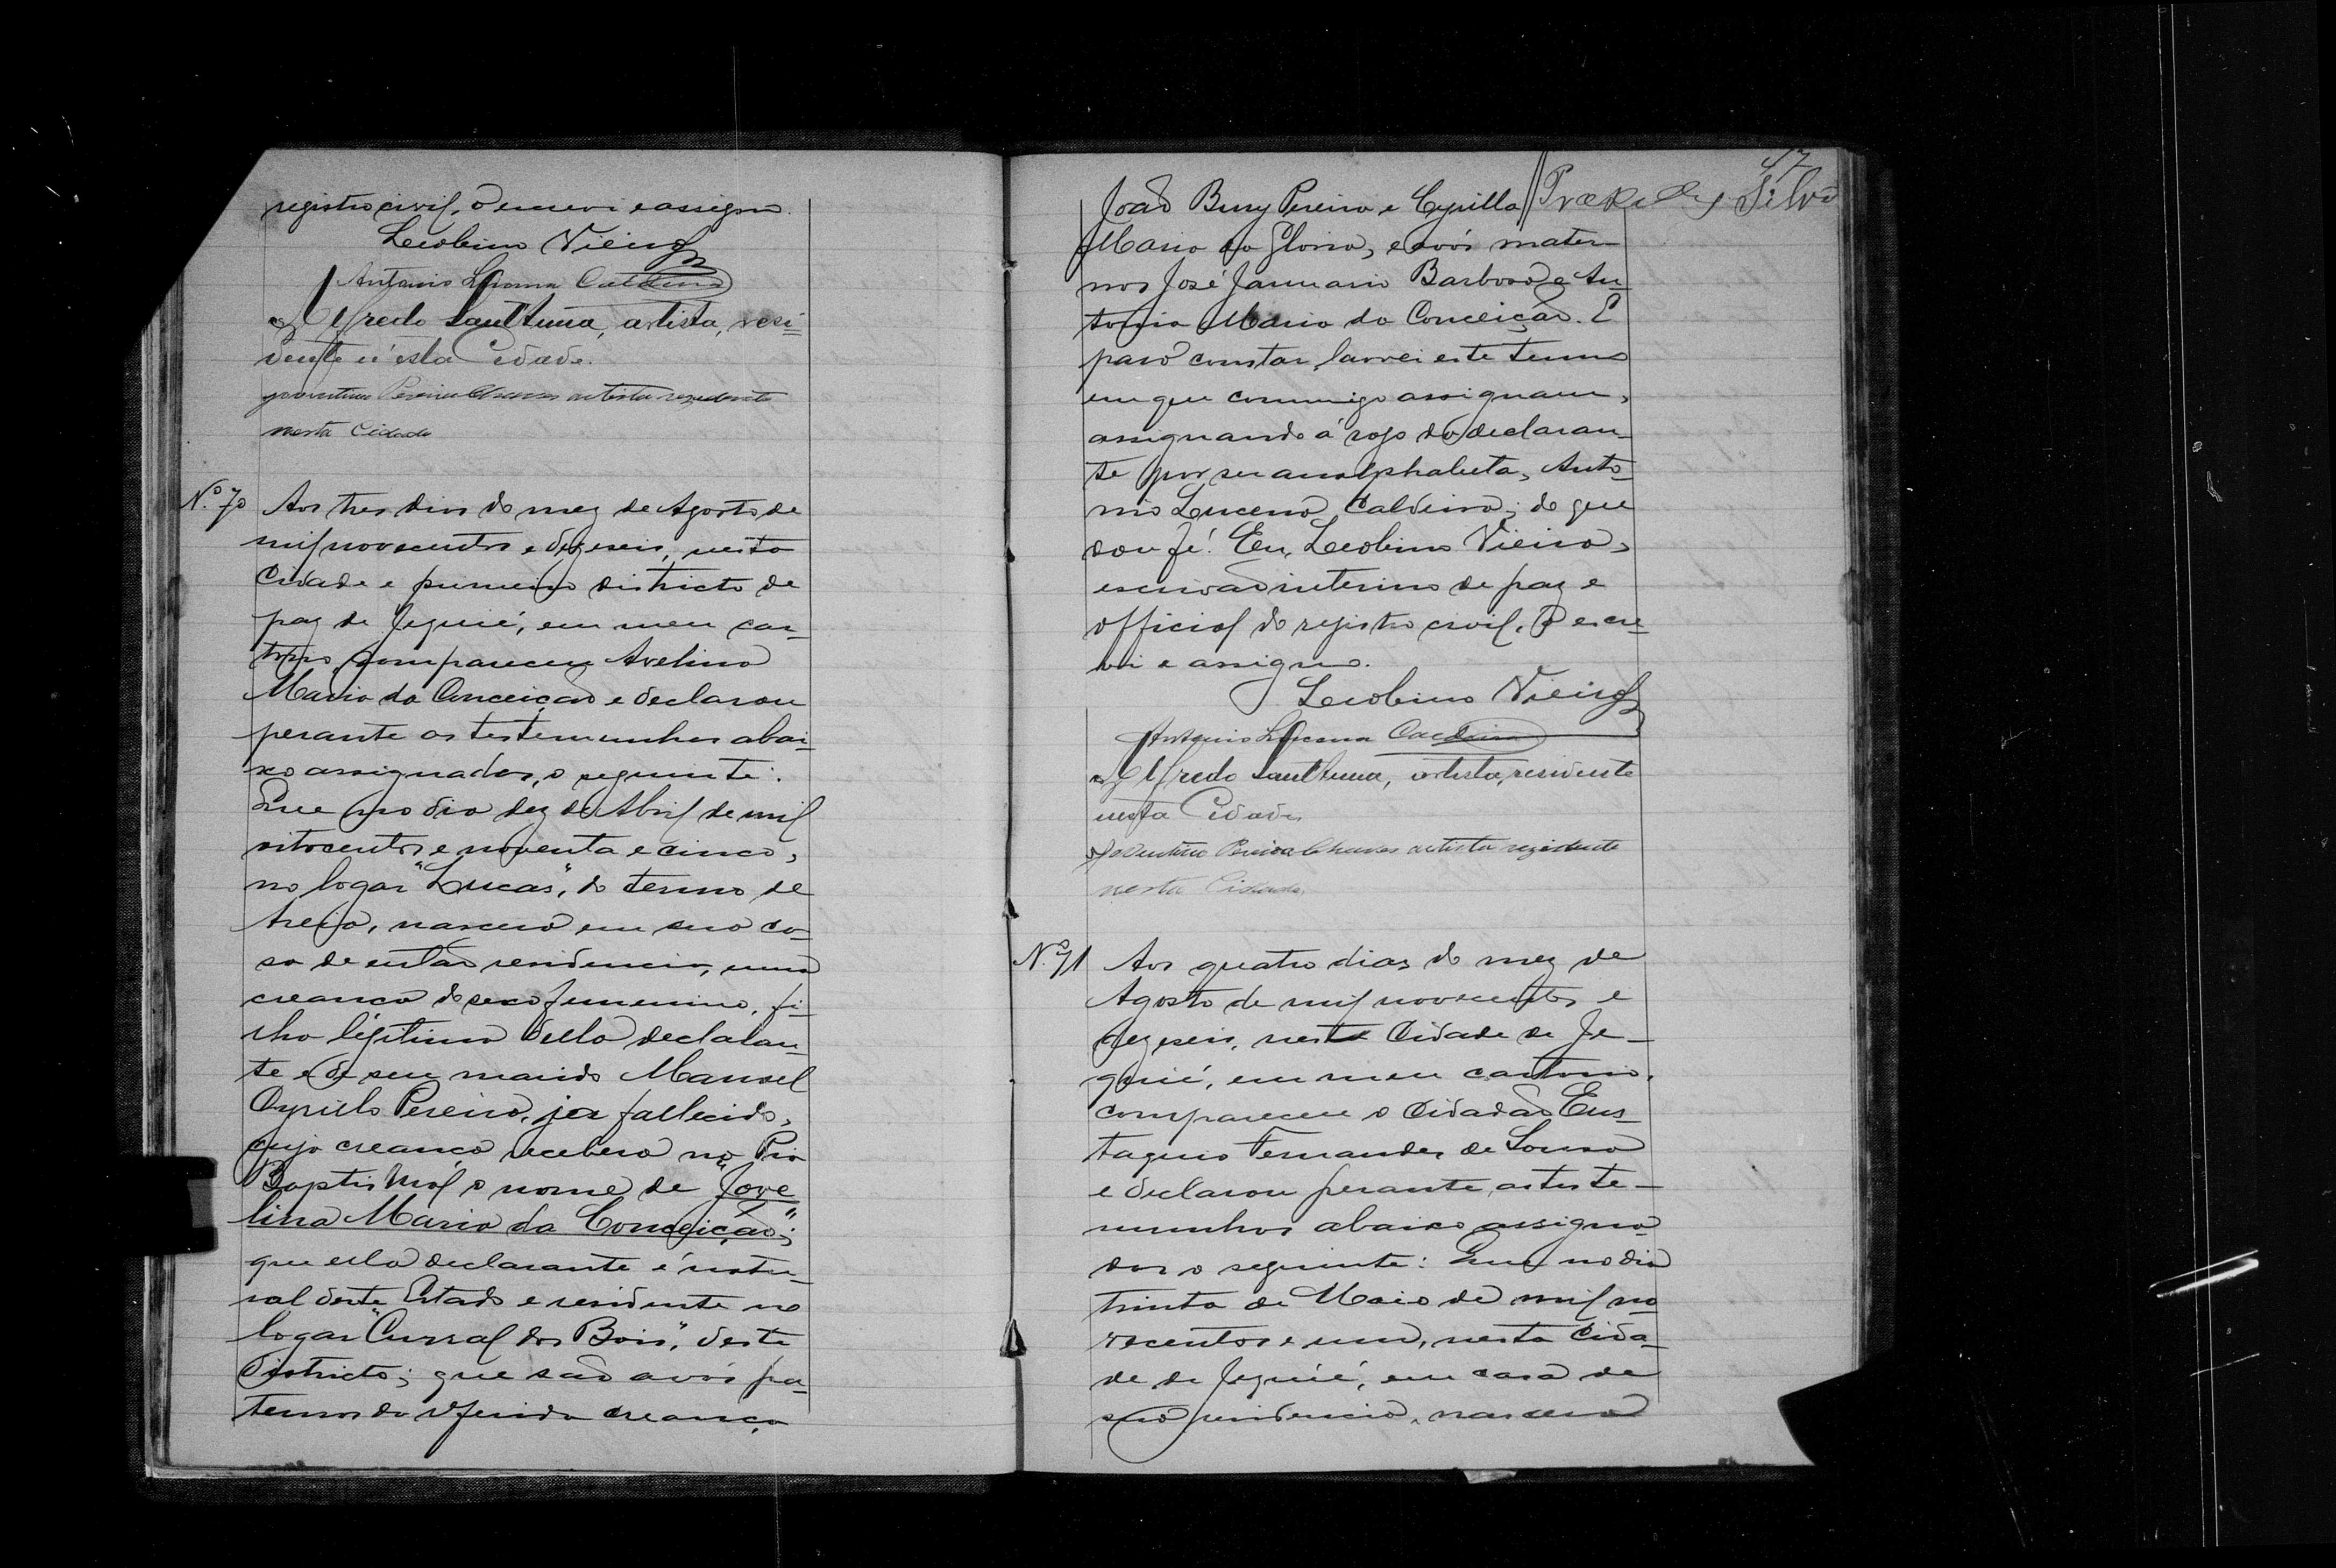 registro civil, o escrevi e assigno.
Leolino Vieira
Antonio Lucena Caldeira
Alfredo Sant'Anna, artista, resi-
dente n'esta Cidade.
Juventino Pereira Chaves artista rezidente
nesta Cidade
Nº 70
Aos tres dias do mez de Agosto de
mil novecentos e dezeseis, nesta
Cidade e primeiro districto de
paz de Jequié, em meu car-
torio compareceu Avelina
Maria da Conceição e declarou
perante as testemunhas abai-
xo assignadas, o seguinte:
Que no dia dez de Abril de mil
oitocentos e noventa e cinco,
no logar "Lucas", do termo de
Areia, nascera em sua ca-
sa de então residencia, uma
creança do sexo femenino, fi-
lha légitima della declaran-
te e de seu marido Manoel
Cyrillo Pereira, ja fallecido,
cuja creança recebera na Pia
Baptismal o nome de "Jove-
lina Maria da Conceição";
que ella declarante é natu-
ral deste Estado e residente no
logar "Curral dos Bois", deste
Districto; que são avós pa-
ternos da referida creança
47
João Bury Pereira e Cyrilla Silva
Maria da Gloria, e avós mater-
nos José Januario Barbosa e An-
tonia Maria da Conceição. E
para constar, lavrei este termo
em que commigo assignam,
assignando á rogo da declaran-
te por ser analphabeta, Anto-
nio Lucena Caldeira; do que
dou fé. Eu, Leolino Vieira,
escrivão interino de paz e
official do registro civil, o escre-
vi e assigno.
Leolino Vieira
Antonio Lucena Caldeira
Alfredo Sant'Anna, artista, residente
nesta Cidade
Juventino Pereira Chaves artista rezidente
nesta Cidade
Nº 71
Aos quatro dias do mez de
Agosto de mil novecentos e
dezeseis, nesta Cidade de Je-
quié, em meu cartorio,
compareceu o Cidadão Eus-
taquio Fernandes de Sousa
e declarou perante as teste-
munhas abaixo assigna-
das o seguinte: Que no dia
trinta de Maio de mil no-
vecentos e um, nesta Cida-
de de Jequié, em casa de
sua residencia, nascera